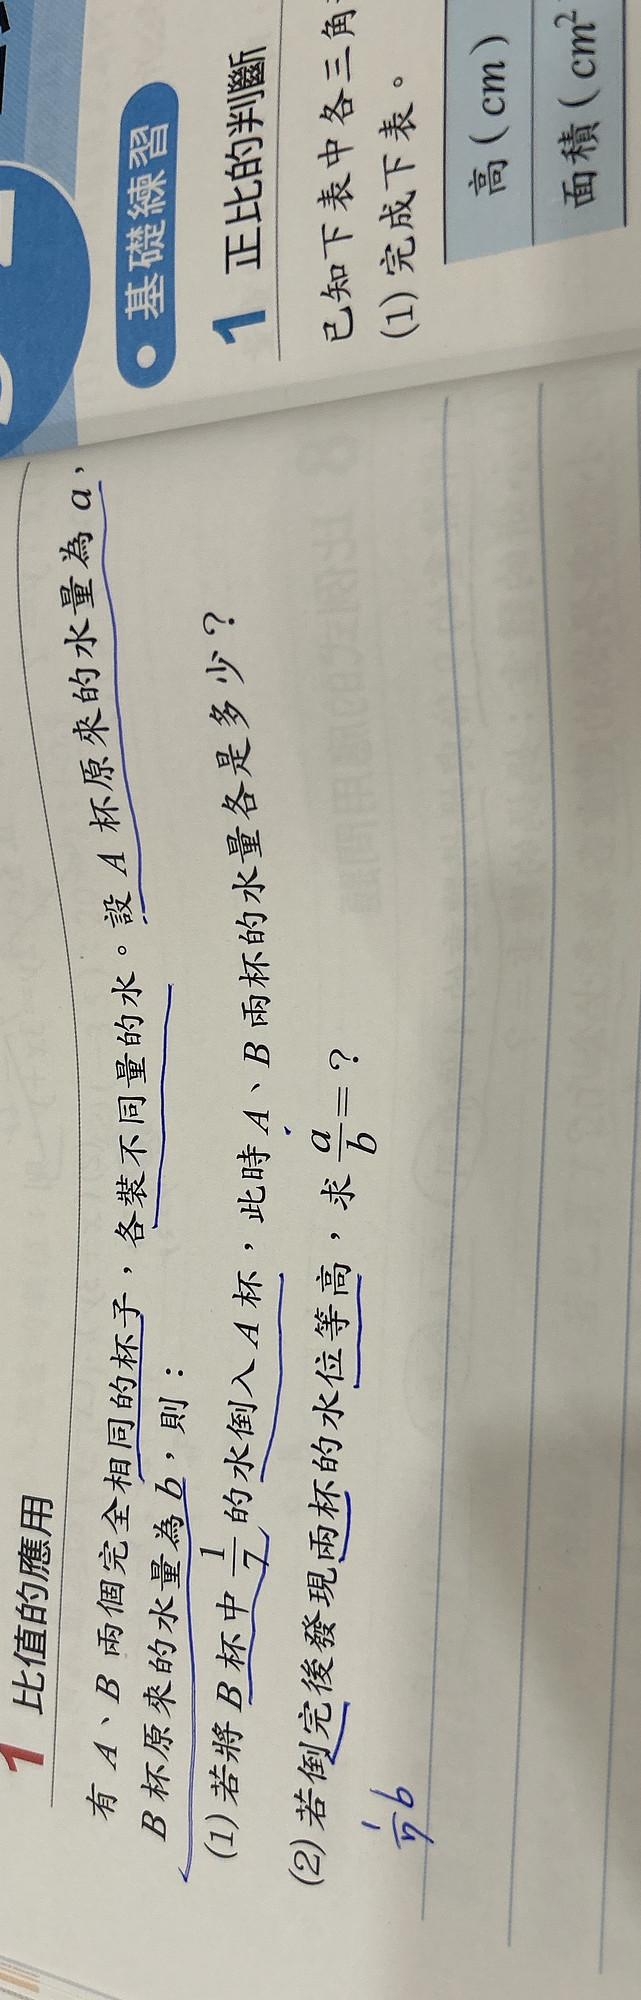 1 比值的應用
有 A、B 兩個完全相同的杯子，各裝不同量的水。設 A 杯原來的水量為 a，
B 杯原來的水量為 b，則：
(1) 若將 B 杯中 1/7 的水倒入 A 杯，此時 A、B 兩杯的水量各是多少？
(2) 若倒完後發現兩杯的水位等高，求 a/b = ？
1/7 b
基礎練習
1 正比的判斷
已知下表中各三角
(1) 完成下表。
高 ( cm )
面積 ( cm²